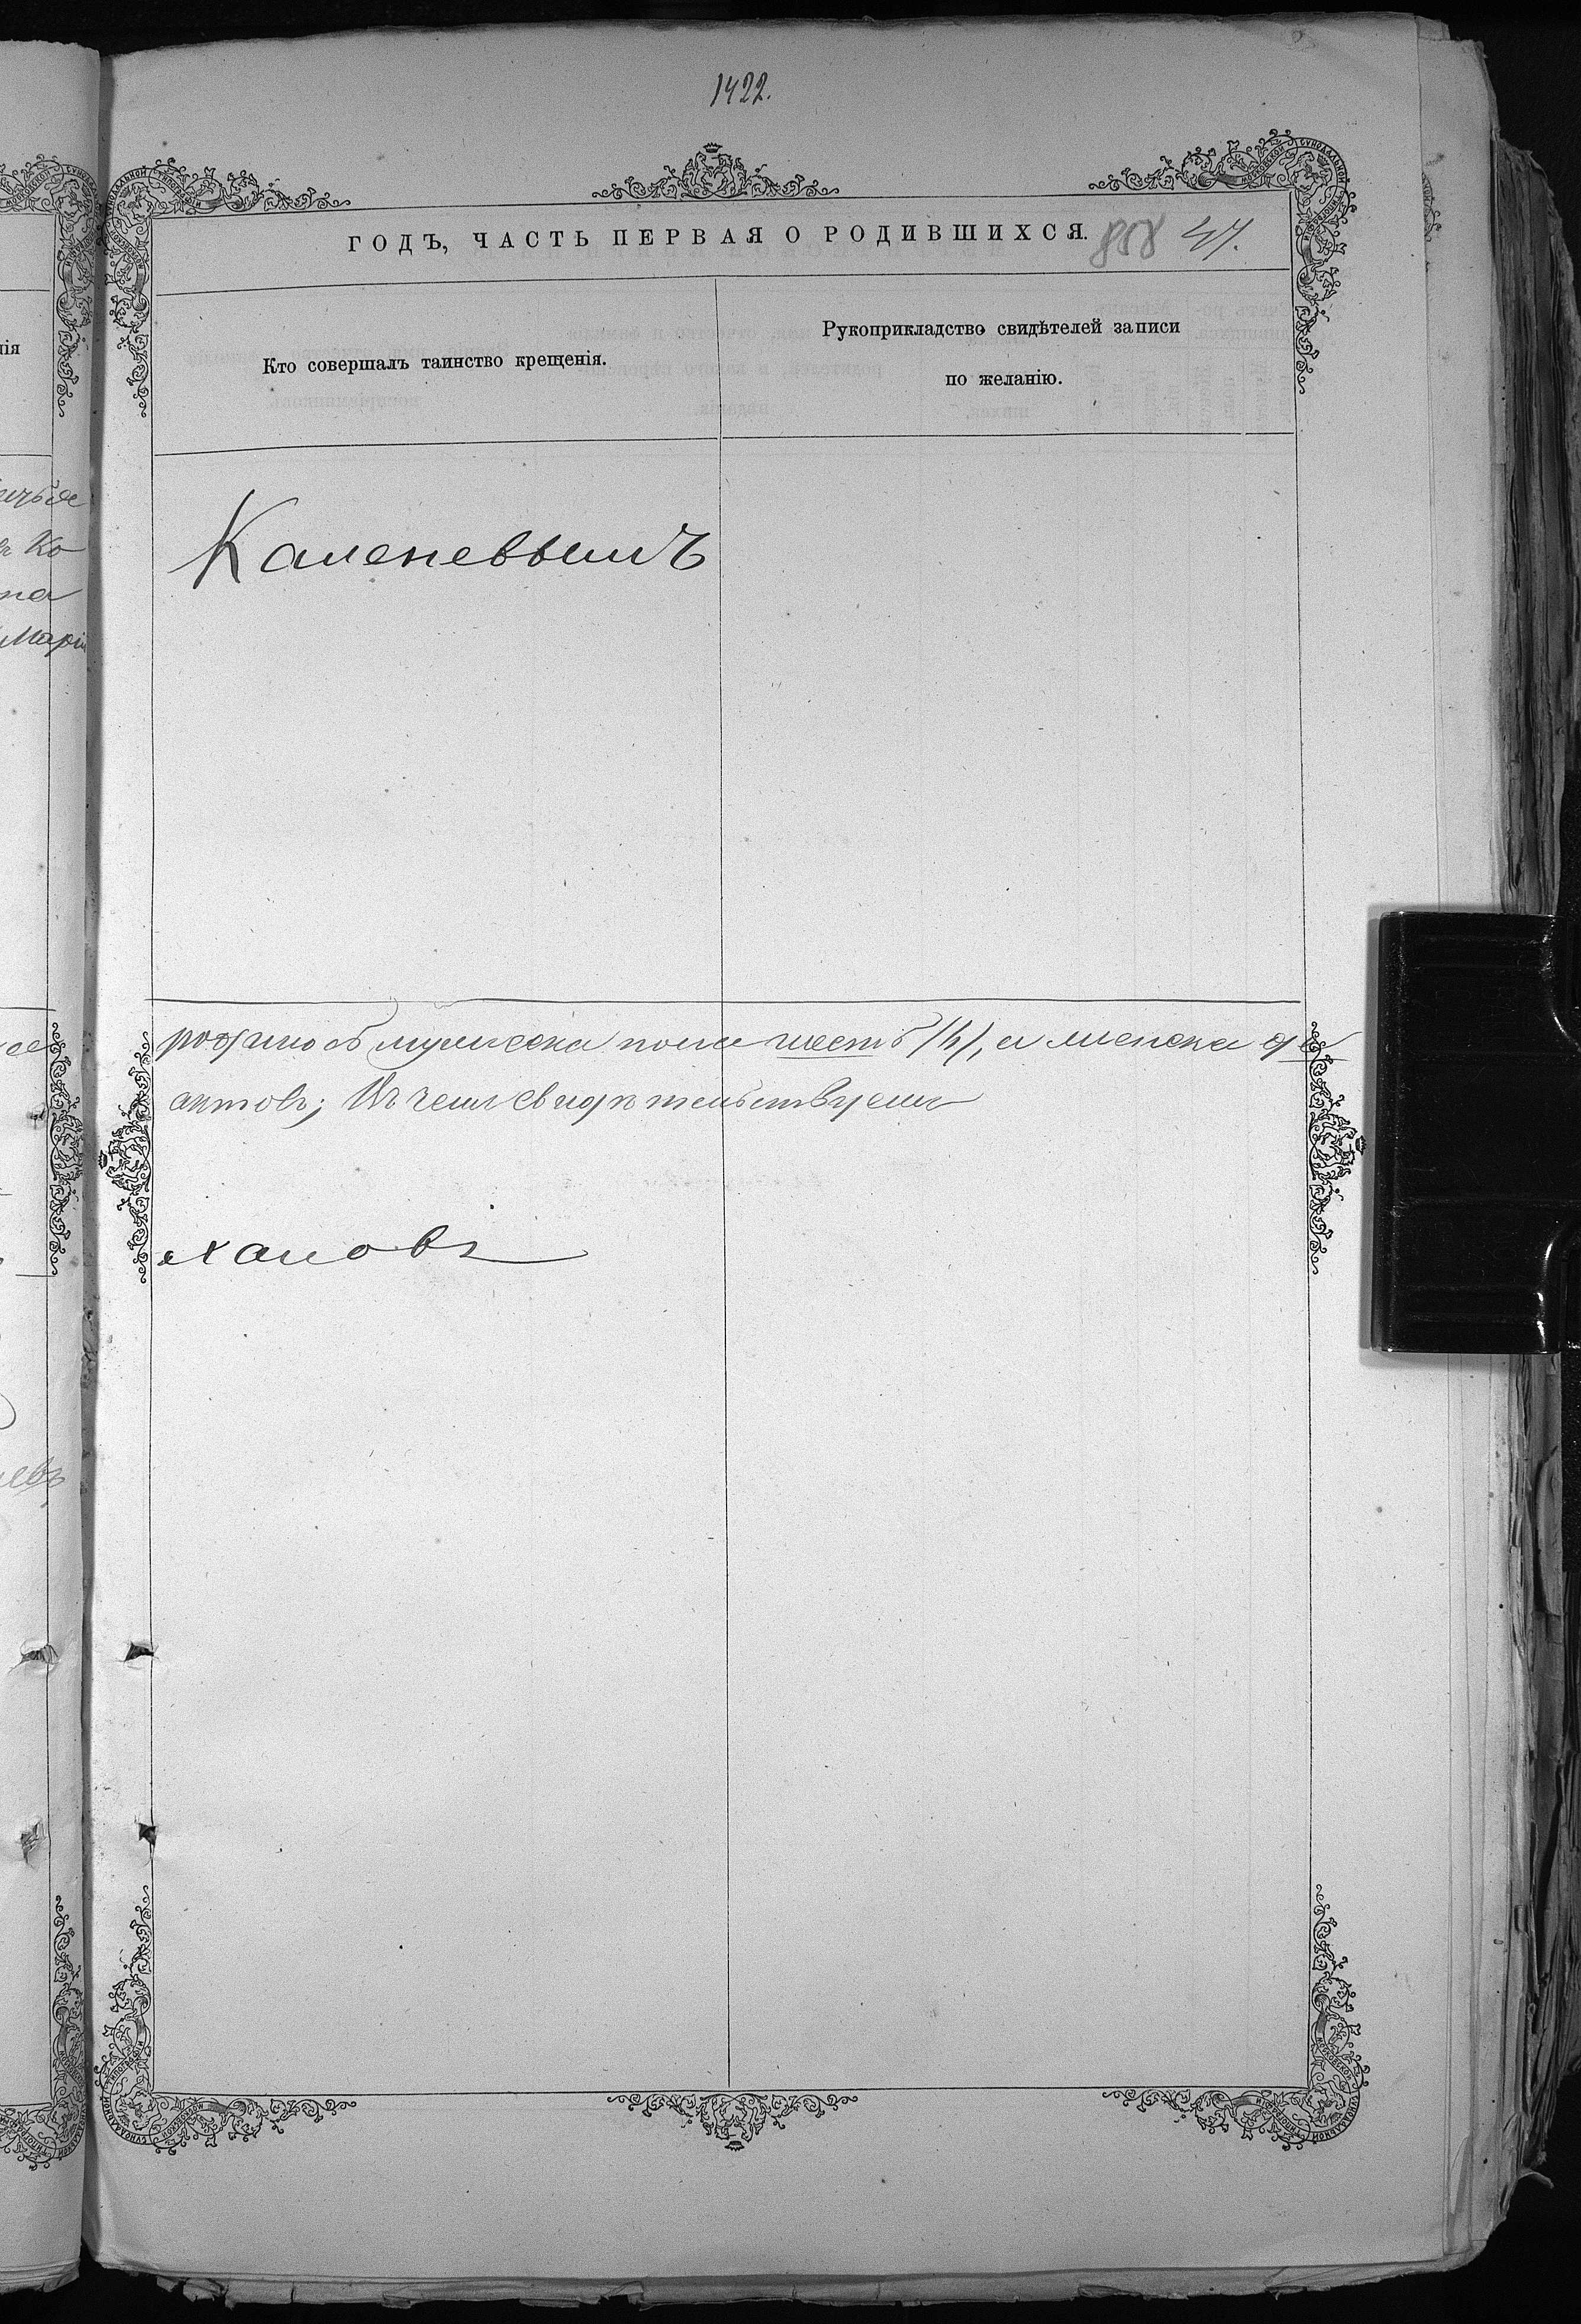 1422.
ГОДЪ, ЧАСТЬ ПЕРВАЯ О РОДИВШИХСЯ. 858 47.
Кто совершалъ таинство крещенія.
Рукоприкладство свидѣтелей записи
по желанію.
Каменевымъ
родилось мужеска пола шесть /6/, а женска
актовъ; Въ чемъ свидѣтельствуемъ
хановъ
Ко
на
Маріи